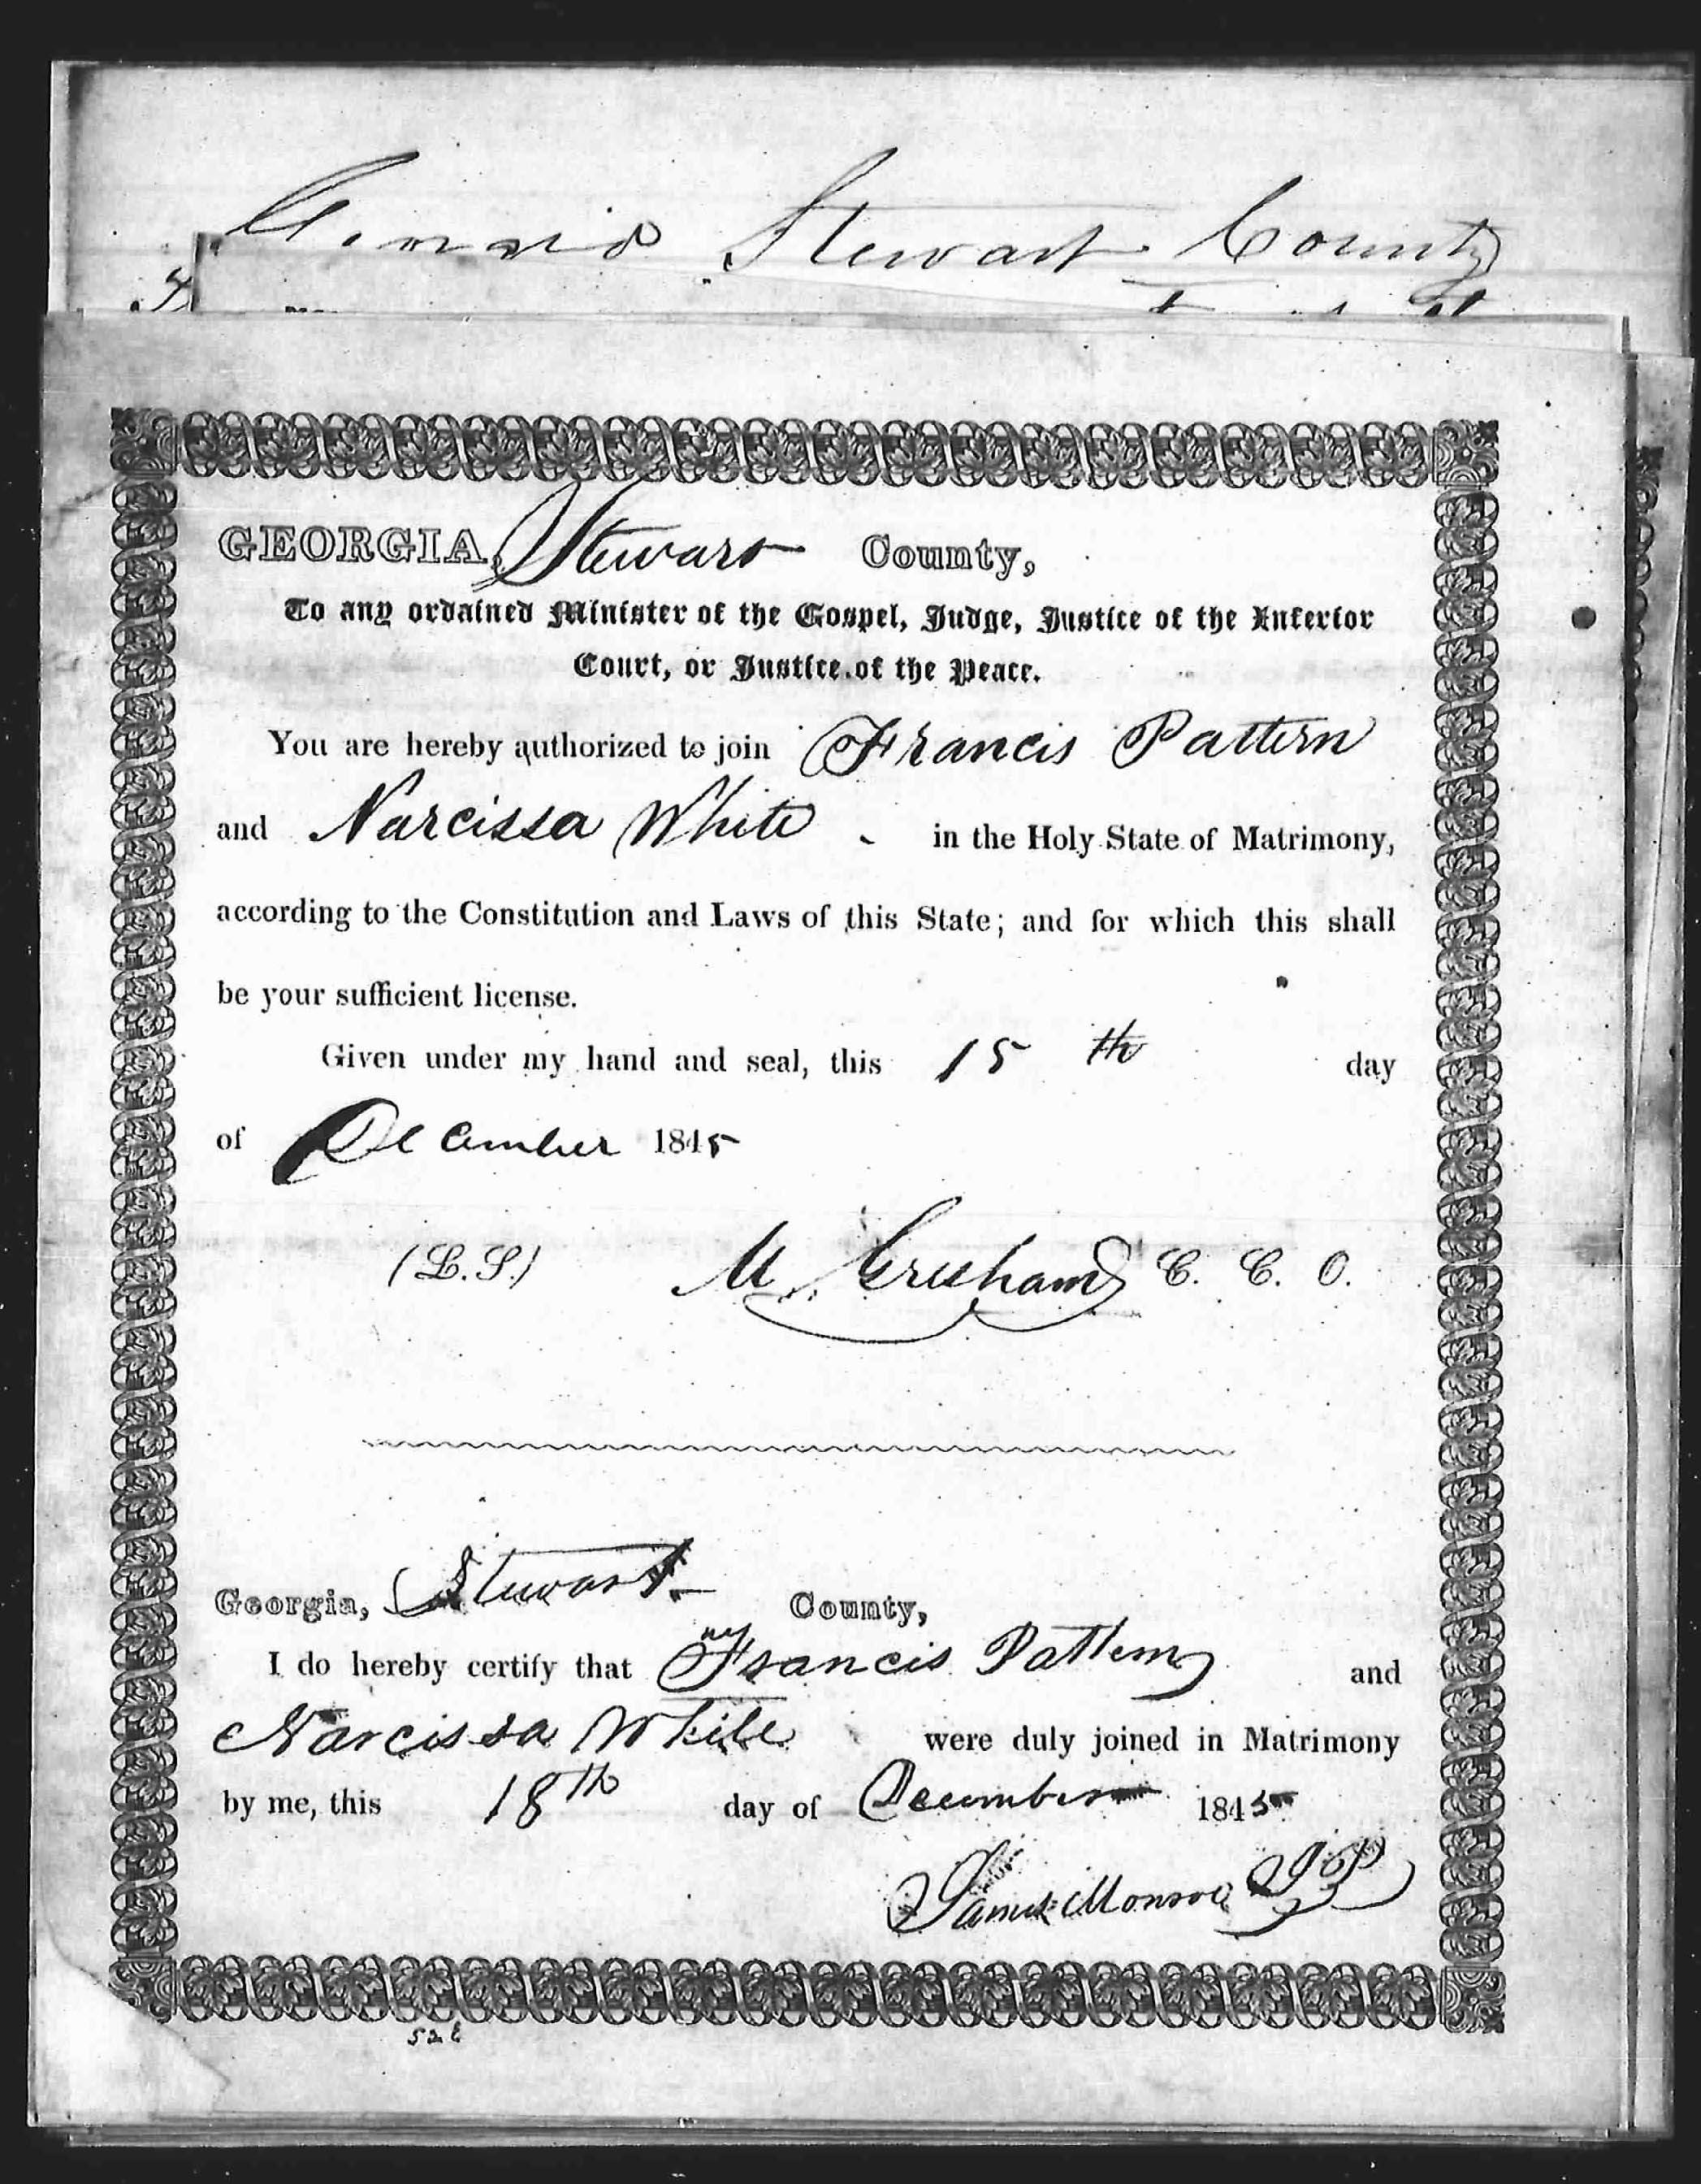 Stewart County
GEORGIA, Stewart County,
To any ordained Minister of the Gospel, Judge, Justice of the Inferior
Court, or Justice of the Peace.
You are hereby authorized to join Francis Pattern
and Narcissa White in the Holy State of Matrimony,
according to the Constitution and Laws of this State; and for which this shall
be your sufficient license.
Given under my hand and seal, this 15 th day
of December 1845
(L.S.) M. Gresham C. C. O.
Georgia, Stewart County,
I do hereby certify that Francis Pattern and
Narcissa White were duly joined in Matrimony
by me, this 18th day of December 1845
James Monroe J.P.